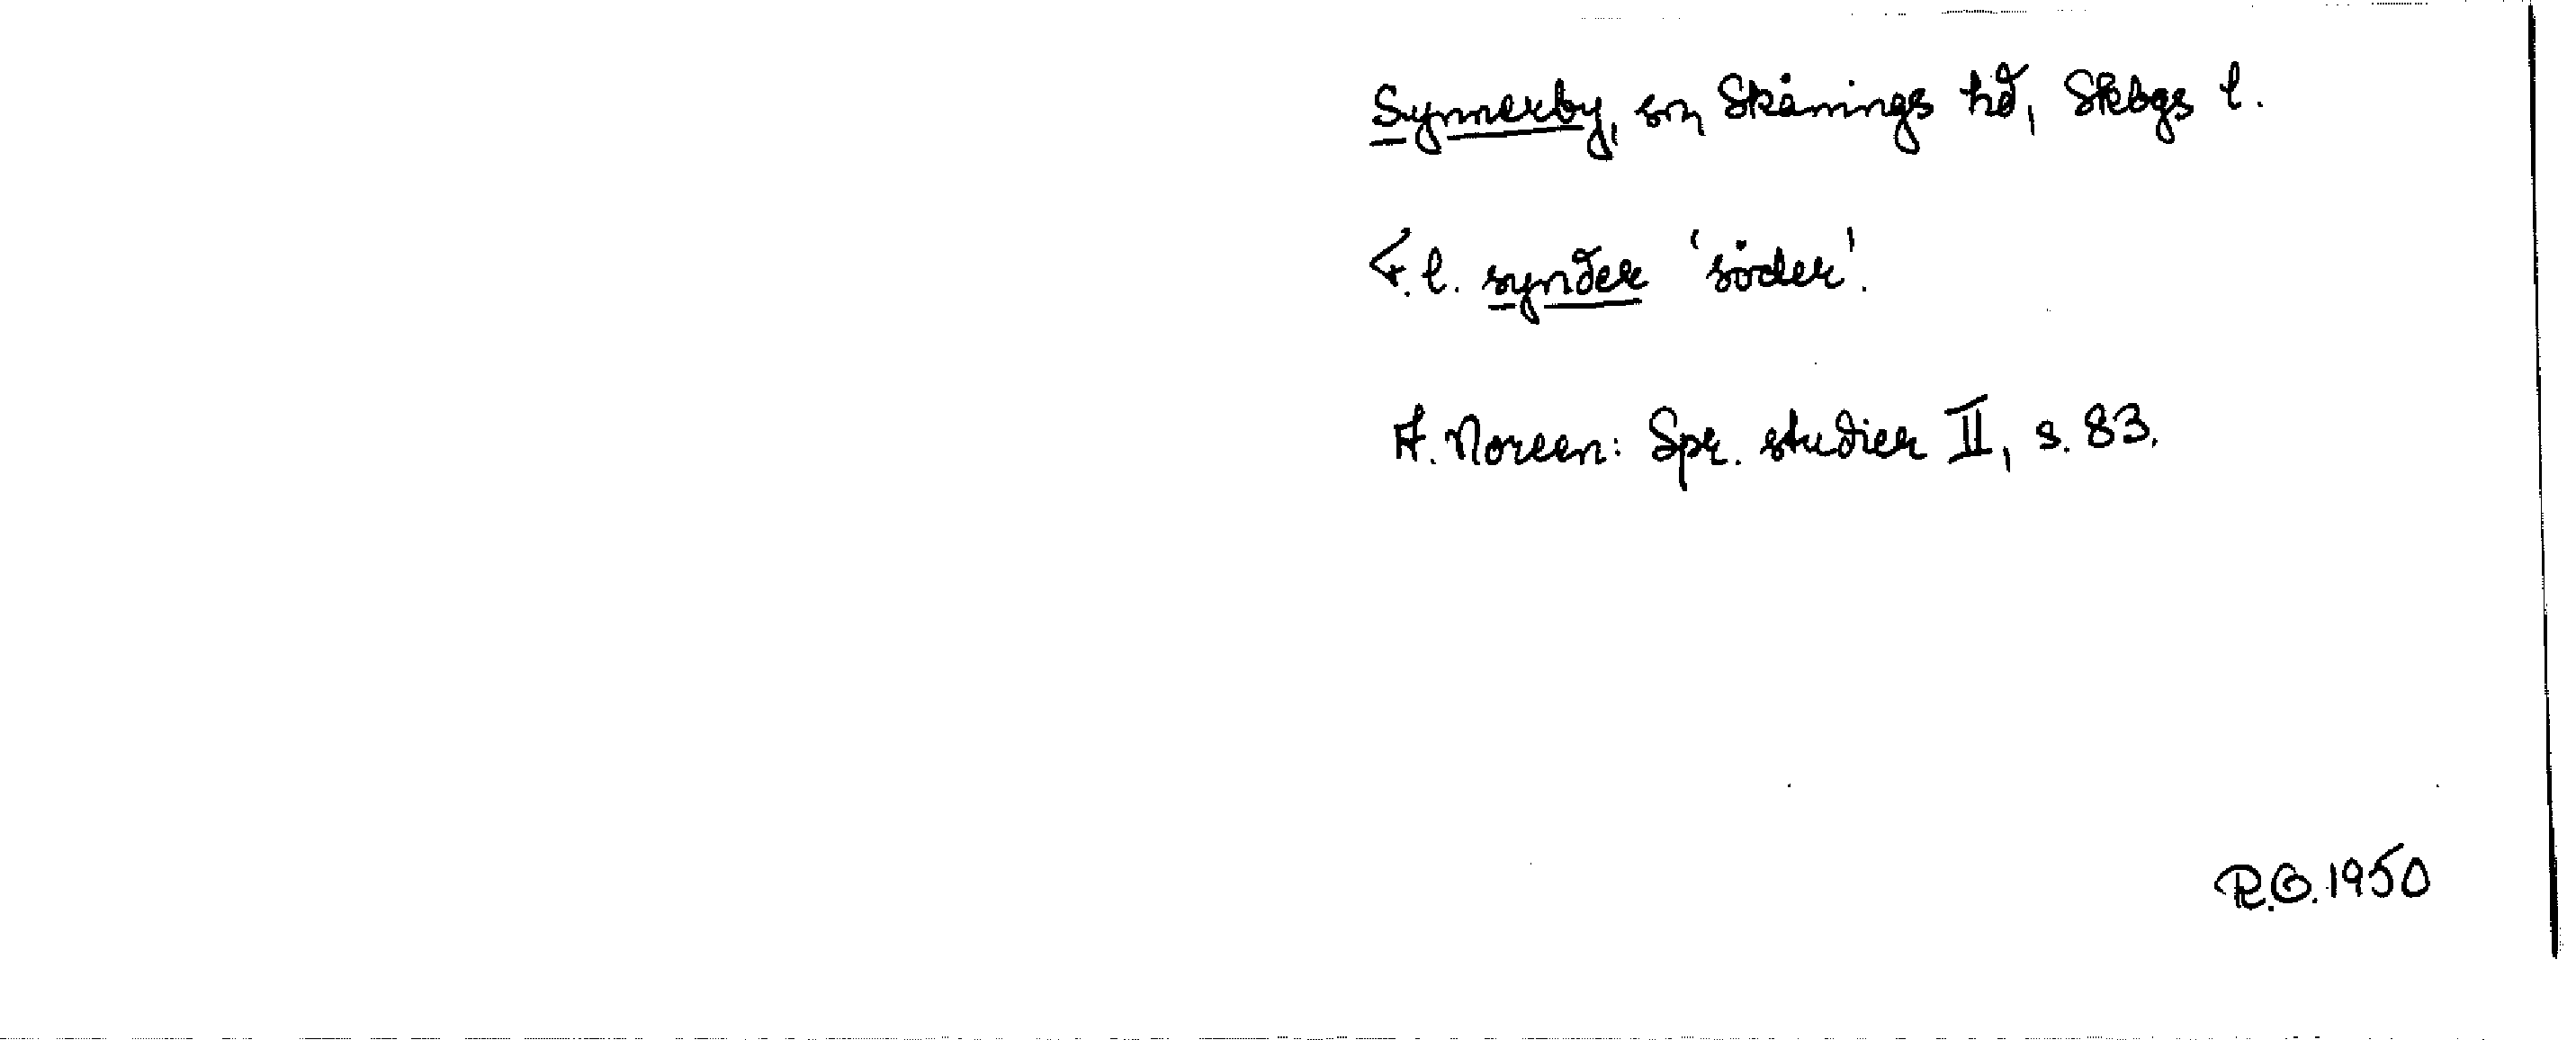 Synnerby, sn, Skånings hd, Skbgs l.
F. l. synder 'söder'.
A. Noreen: Spr. studier II, s. 83.
R.O. 1950